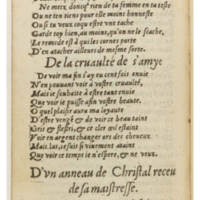 Ne metz donc rien de ta femme en ta teste
Ou ne tien rien pour elle moins honneste
Ou si tu veux coçu estre voy tache
Gardes toy bien, au moins, qu'on ne le sçache,
Le remede est à qui les cornes porte
D'en atacher ailleurs de mesme sorte.
De la cruaulté de s'amye
De voir ma fin s'ay eu cent fois enuie
N'en pouuant voir à vostre cruaulté,
Mais ie souhaite à estre tant enuie
Que voir ie puisse afin vostre beauté,
Quel plaisir aura ma loyauté
D'estre vengé & de voir ce beau taint
Gris & flestri, & ce cler œil estaint
Voir en argent changer ors des cheueux
Mais, las, ie suis si viuement ataint
Que voir ce temps ie n'espere, & ne veux.
D'vn anneau de Christal receu
de sa maistresse.